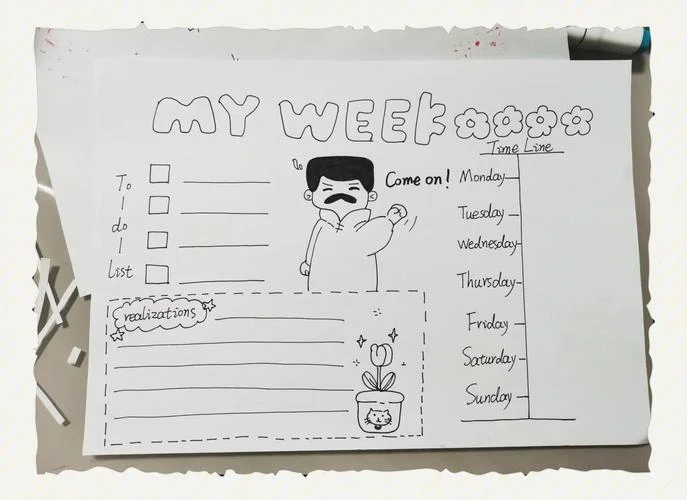 MY WEEK
To
do
list
Come on!
realizations
Time Line
Monday
Tuesday
Wednesday
Thursday
Friday
Saturday
Sunday